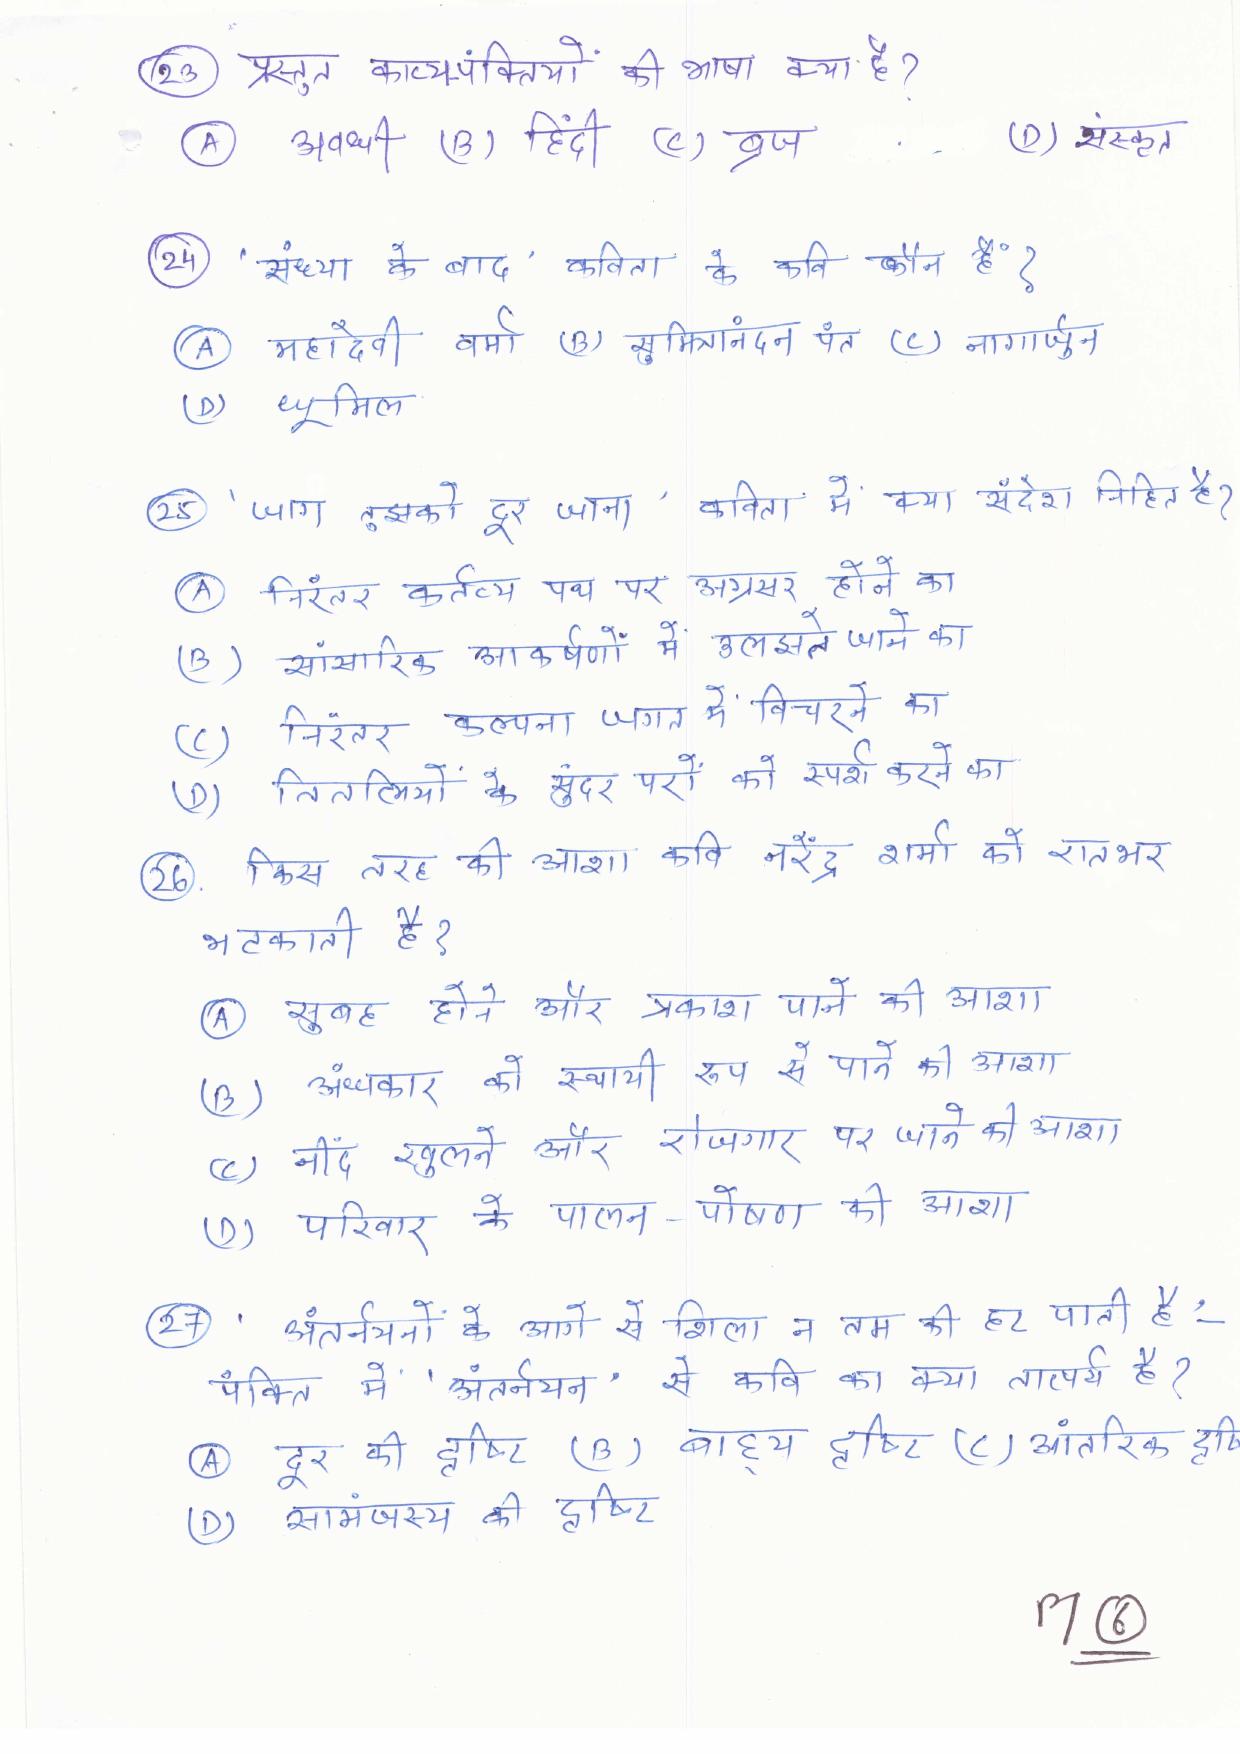 (23) प्रस्तुत काव्य-पंक्तियों की भाषा क्या है?
(A) अवधी (B) हिंदी (C) ब्रज (D) संस्कृत
(24) 'संध्या के बाद' कविता के कवि कौन हैं?
(A) महादेवी वर्मा (B) सुमित्रानंदन पंत (C) नागार्जुन
(D) धूमिल
(25) 'जाग तुझको दूर जाना' कविता में क्या संदेश निहित है?
(A) निरंतर कर्तव्य पथ पर अग्रसर होने का
(B) सांसारिक आकर्षणों में उलझते जाने का
(C) निरंतर कल्पना जगत में विचरने का
(D) तितलियों के सुंदर परों को स्पर्श करने का
(26). किस तरह की आशा कवि नरेंद्र शर्मा को रातभर
भटकाती है?
(A) सुबह होने और प्रकाश पाने की आशा
(B) अंधकार को स्थायी रूप से पाने की आशा
(C) नींद खुलने और रोजगार पर जाने की आशा
(D) परिवार के पालन-पोषण की आशा
(27) 'अंतर्नयनों के आगे से शिला न तम की हट पाती है':-
पंक्ति में 'अंतर्नयन' से कवि का क्या तात्पर्य है?
(A) दूर की दृष्टि (B) बाह्य दृष्टि (C) आंतरिक दृष्टि
(D) सामंजस्य की दृष्टि
(6)